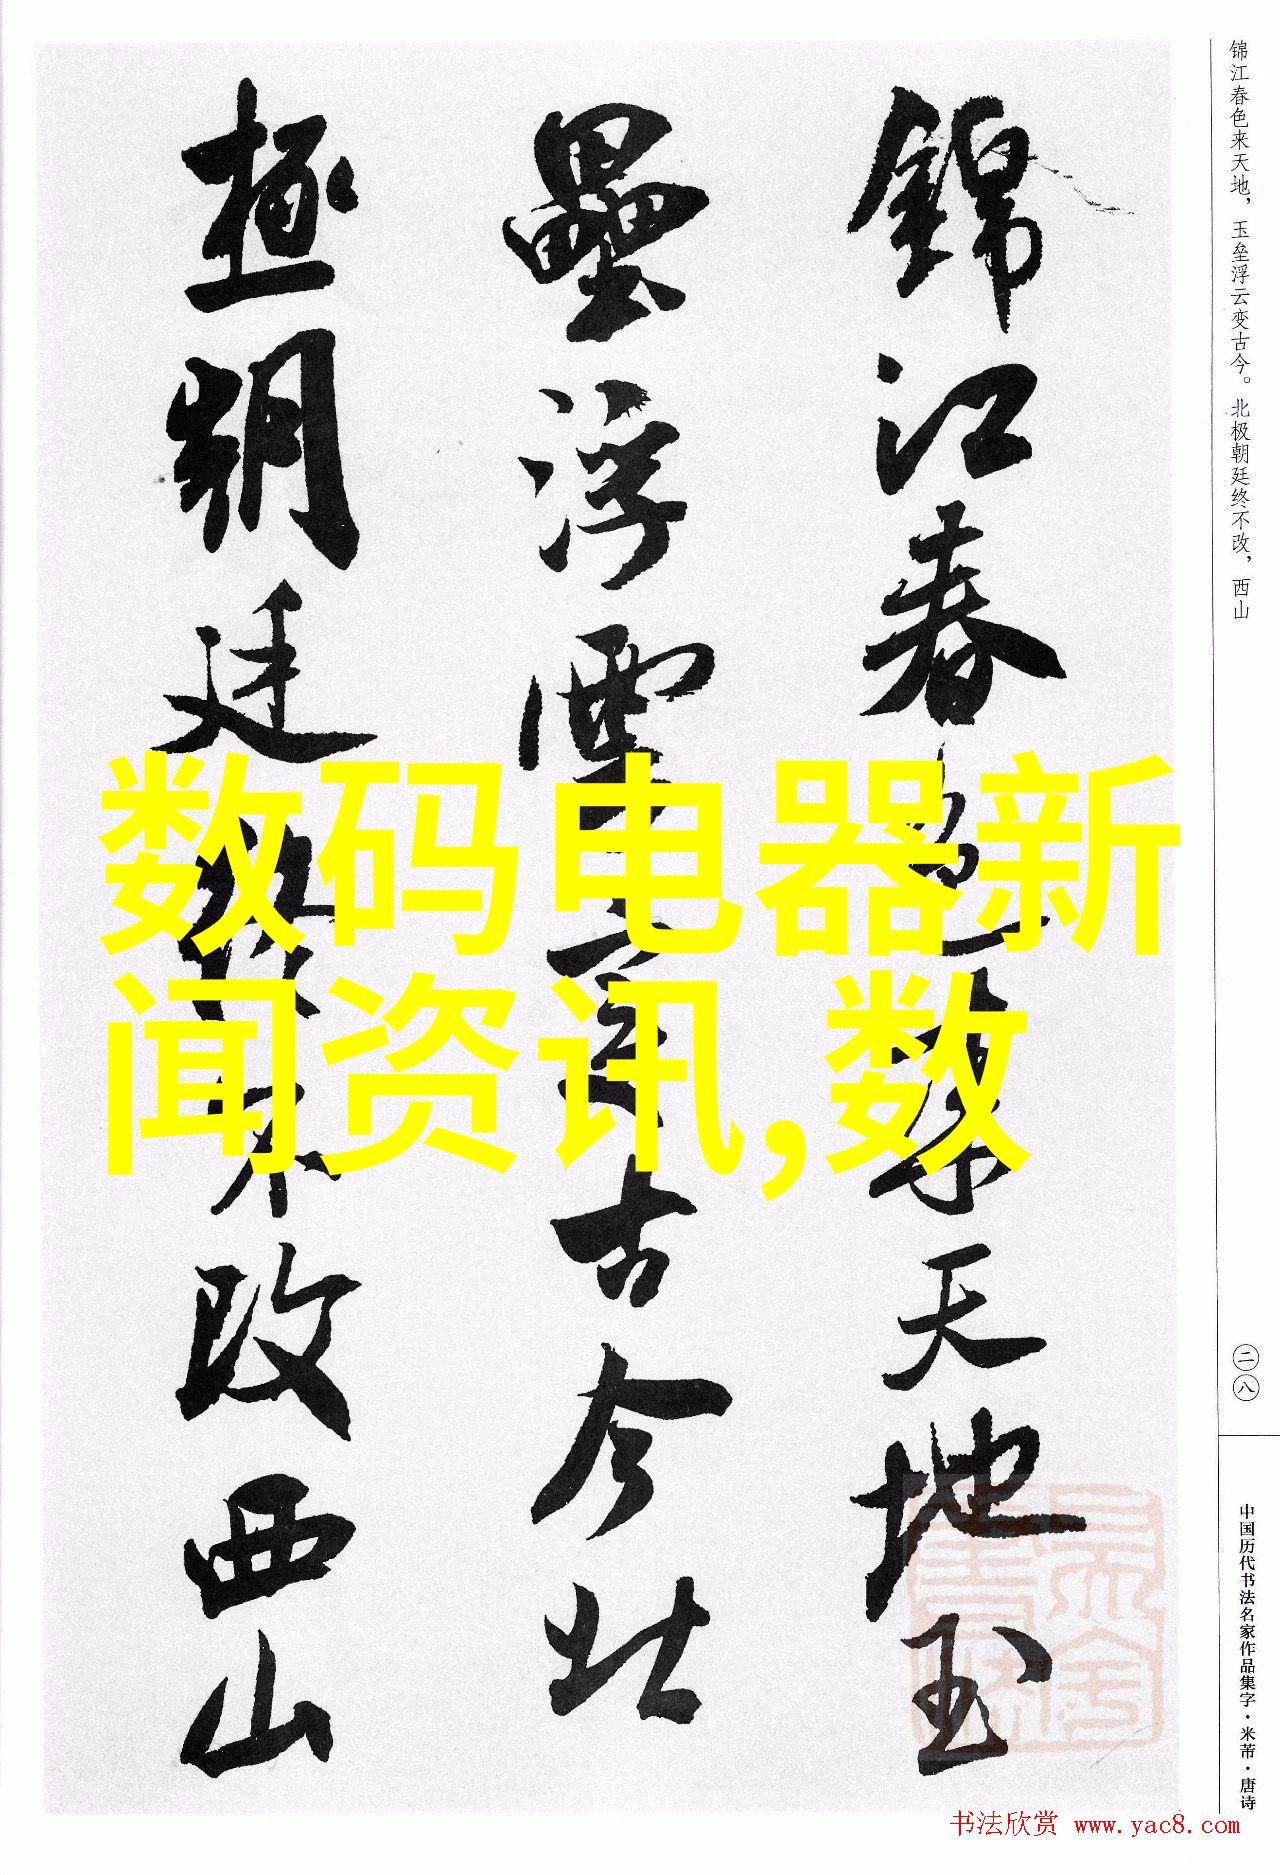 锦江春色来天地，玉垒浮云变古今。北极朝廷终不改，西山
錦江春色來天地玉
壘浮雲變古今北
極朝廷終不改西山
数码电器新
闻资讯,数
二八
中国历代书法名家作品集字·米芾·唐诗
书法欣赏 www.yac8.com